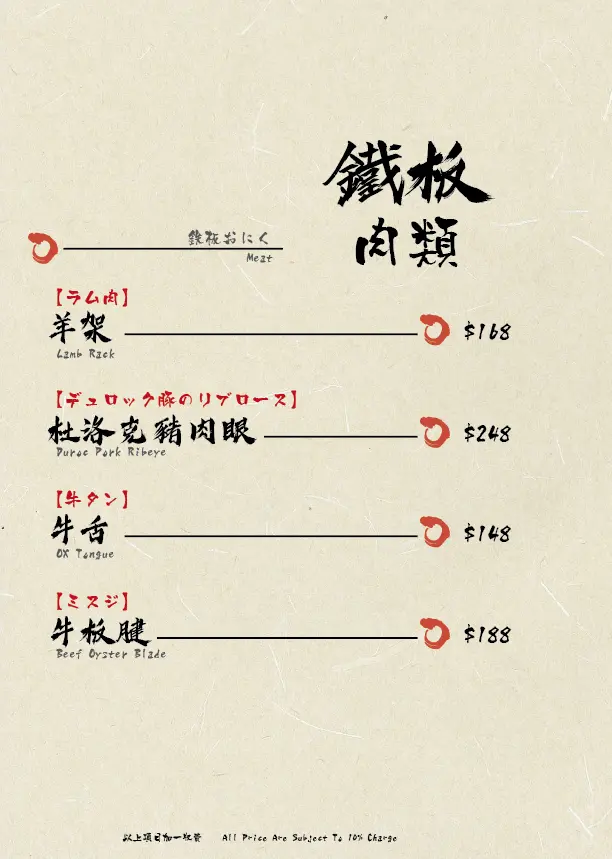 鐵板
肉類
鉄板おにく
Meat
【ラム肉】
羊架 $168
Lamb Rack
【デュロック豚のリブロース】
杜洛克豬肉眼 $248
Duroc Pork Ribeye
【牛タン】
牛舌 $148
OX Tongue
【ミスジ】
牛板腱 $188
Beef Oyster Blade
以上項目加一收費 All Price Are Subject To 10% Charge